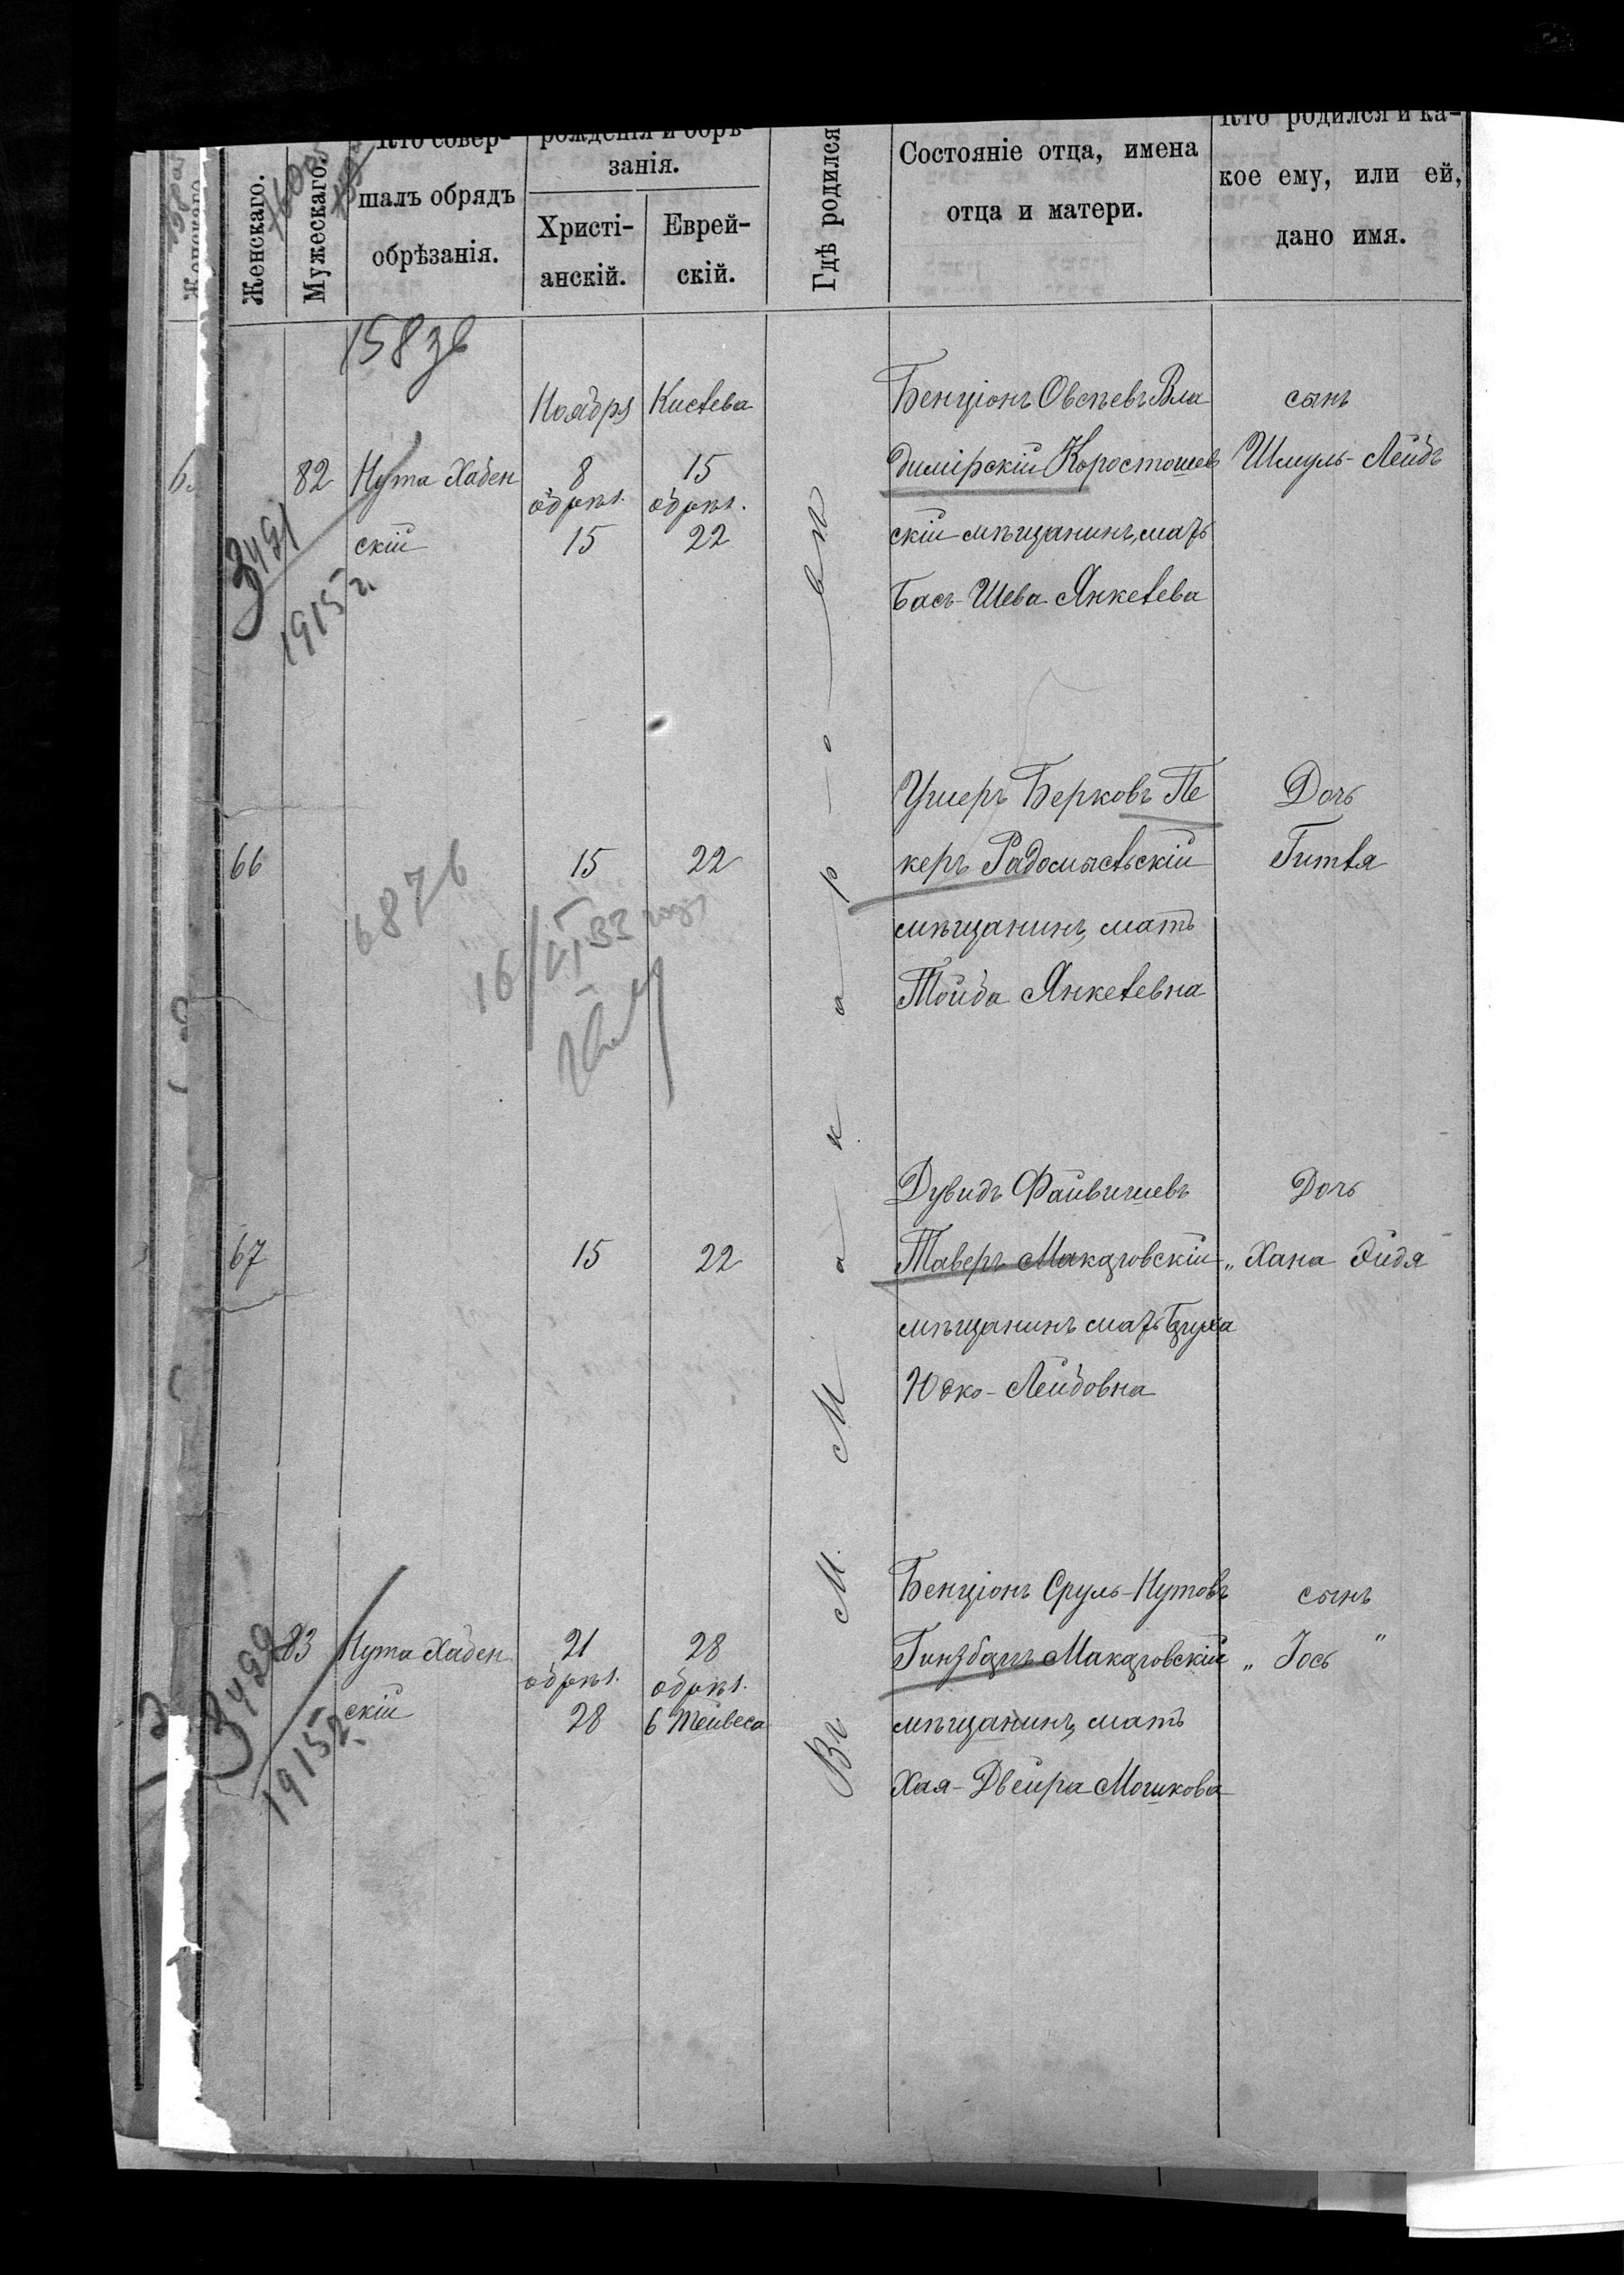 Женскаго.
Женскаго.
Мужескаго.
Кто совер-
шалъ обрядъ
обрѣзанія.
рожденія и обрѣ-
занія.
Христі-
анскій.
Еврей-
скій.
Гдѣ родился
Состояніе отца, имена
отца и матери.
Кто родился и ка-
кое ему, или ей,
дано имя.
158 зв
Въ М. Макаровѣ
82
Нута Хабен
скій
Ноября
8
обрѣз.
15
Кислева
15
обрѣз.
22
Бенціонъ Овсѣевъ Вла
димірскій Коростошев
скій мѣщанинъ, мать
Бась-Шева Янкелева
сынъ
Шмуль-Лейбъ
3491
1915 г.
66
15
22
Ушеръ Берковъ Пе
керъ Радомысльскій
мѣщанинъ, мать
Тойба Янкелевна
Дочь
Гитля
687 в
67
15
22
Дувидъ Файвишевъ
Таверъ Макаровскій
мѣщанинъ мать Бруха
Юско-Лейбовна
Дочь
„ Хана Эйдя
83
Нута Хабен
скій
21
обрѣз.
28
28
обрѣз.
6 Тейвеса
Бенціонъ Сруль-Нутовъ
Гинзбаръ Макаровскій
мѣщанинъ, мать
Хая-Двейра Мошкова
сынъ
„ Іось "
3499
1915 г.